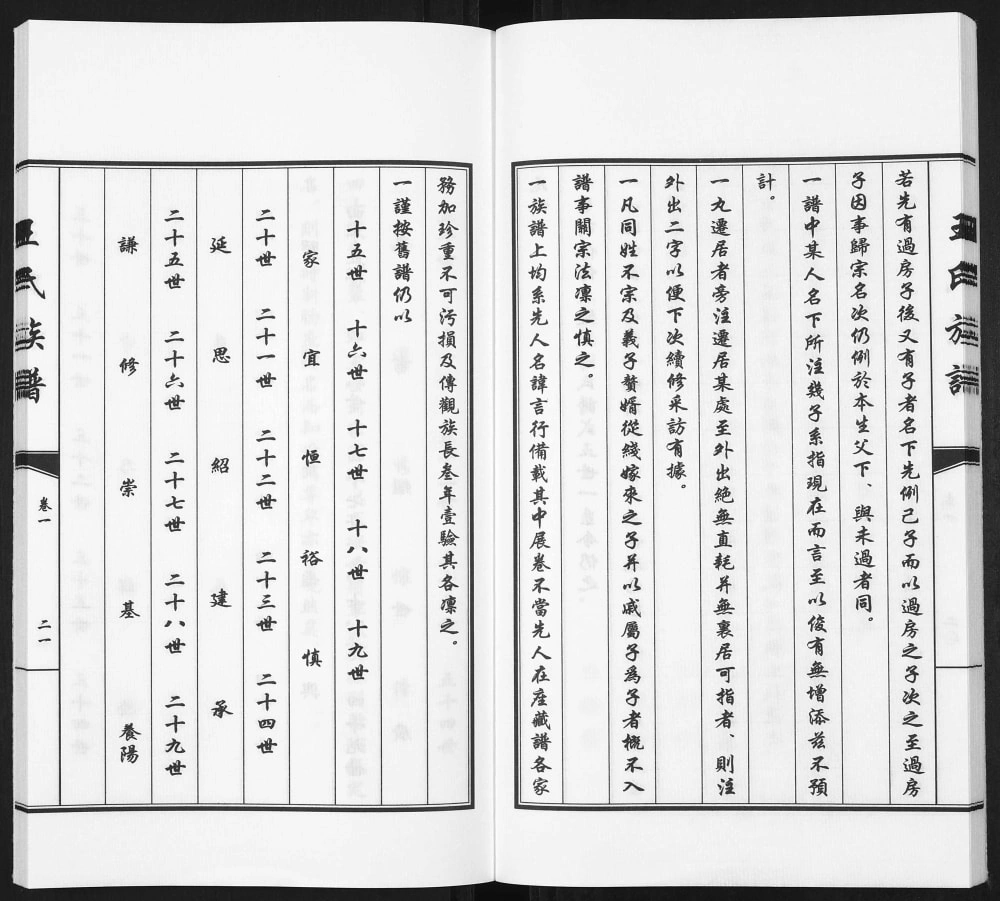 王氏族譜
若先有過房子後又有子者名下先例己子而以過房之子次之至過房
子因事歸宗名次仍例於本生父下、與未過者同。
一譜中某人名下所注幾子系指現在而言至以後有無增添茲不預
計。
一九遷居者旁注遷居某處至外出絕無直耗并無裏居可指者、則注
外出二字以便下次續修采訪有據。
一凡同姓不宗及義子贅婿從綫嫁來之子并以戚屬子為子者概不入
譜事關宗法凜之慎之。
一族譜上均系先人名諱言行備載其中展卷不當先人在座藏譜各家
務加珍重不可污損及傳觀族長叁年壹驗其各凜之。
一謹按舊譜仍以
十五世 十六世 十七世 十八世 十九世
家 宜 恒 裕 慎
二十世 二十一世 二十二世 二十三世 二十四世
延 思 紹 建 承
二十五世 二十六世 二十七世 二十八世 二十九世
謙 修 崇 基 養陽
王氏族譜
卷一
二一